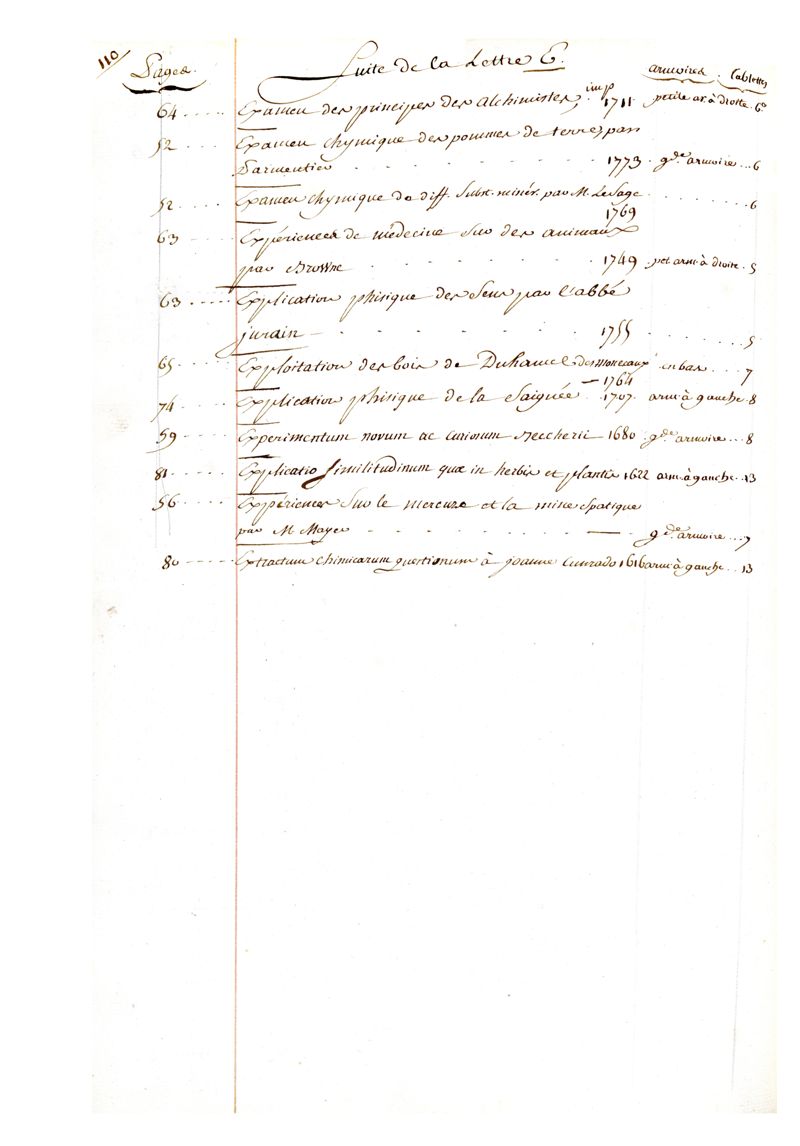 110
Pages. Suite de la Lettre E. armoires. tablettes
64 ..... Examen des principes des alchimistes, imp 1711 petite ar. à droite. 6e
52 .... Examen chymique des pommes de terre, par
Parmentier . . . . . . 1773 . gde armoire ... 6
52 .... Examen chymique de diff. Subst. minér. par M. Le Sage ........ 6
1769
63 .... Expériences de médecine Sur des animaux
par Browne . . . . . . 1749 . pet arm. à droite . 5
63 ..... Explication phisique des Sens par l'abbé
jurain — . . . . . . 1755 ........ 5
65 .... Exploitation des bois de Duhamel des monceaux en bas ... 7
— 1764
74 .... Explication phisique de la Saignée .. 1707. arm. à gauche . 8
59 .... Experimentum novum ac curiosum 1680 . gde armoire ... 8
81 ..... Explicatio Similitudinum quæ in herbis et plantis 1622 arm. à gauche .. 13
56 .... Expériences Sur le mercure et la mine spatique
par M. Mayer . . . . . . — . gde armoire ... 7
80 ..... Extractum chimicarum questionum à joanne Cunrado 1616 arm. à gauche ... 13